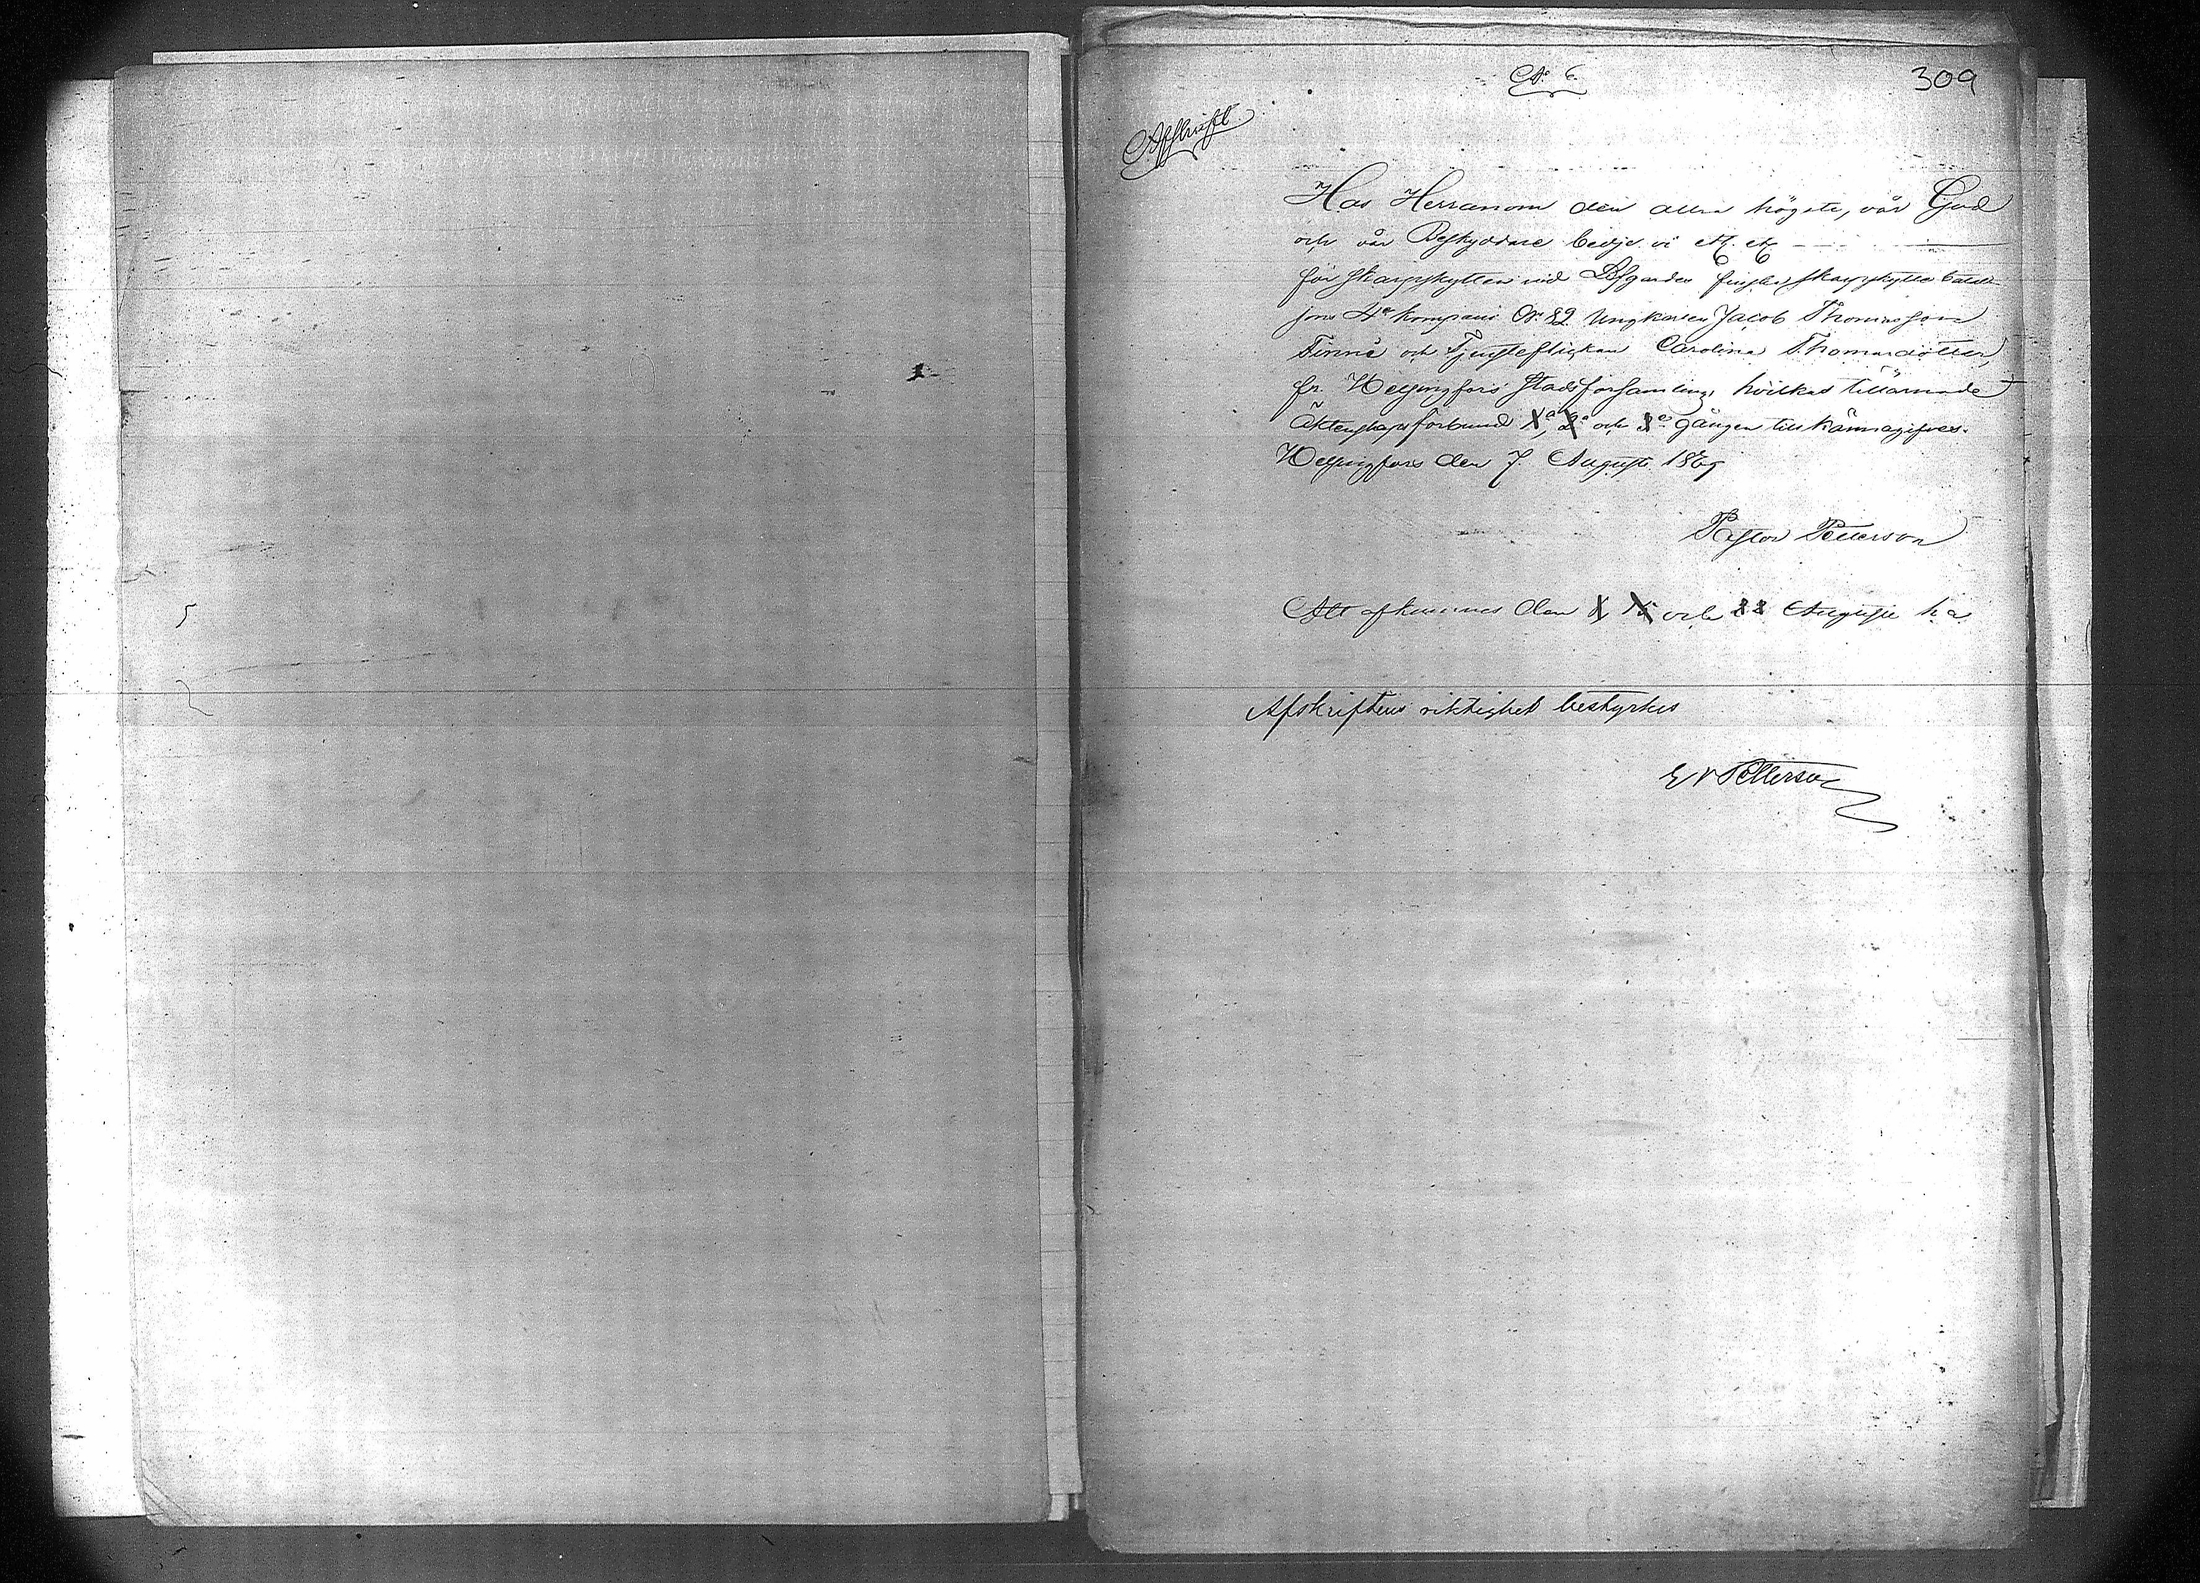 N:o 6.
309
Afskrift.
Hos Herranom den allra högste, vår Gud
och vår Beskyddare bedje vi etc etc
för skarpskytten vid Lifgardes finska skarpskytte batal-
jons 4:e kompani N:o 82 Ungkarlen Jacob Thomasson
Tinne och Tjensteflickan Carolina Thomasdotter,
fr. Helsingfors Stadsförsamling, hvilkas tillärnade
Äktenskapsförbund 1:a, 2:a och 3:e gången tillkännagifves.
Helsingfors den 7. Augusti 1869
Pastor Petterson
Att afkunnas den 8, 15 och 22 Augusti h. a.
Afskriftens riktighet bestyrkes
E V Petterson